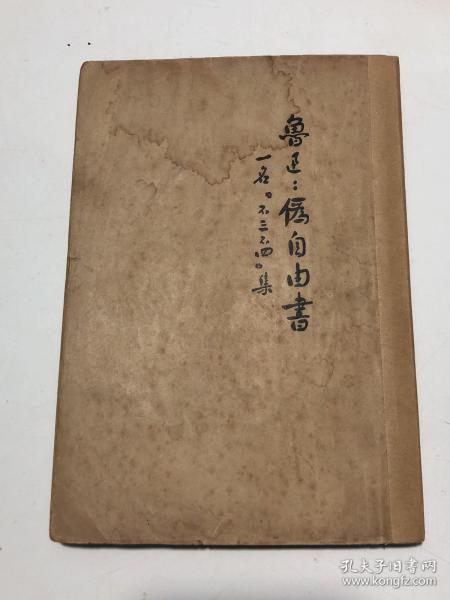 魯迅：偽自由書
一名「不三不四」集
孔夫子旧书网
www.kongfz.com